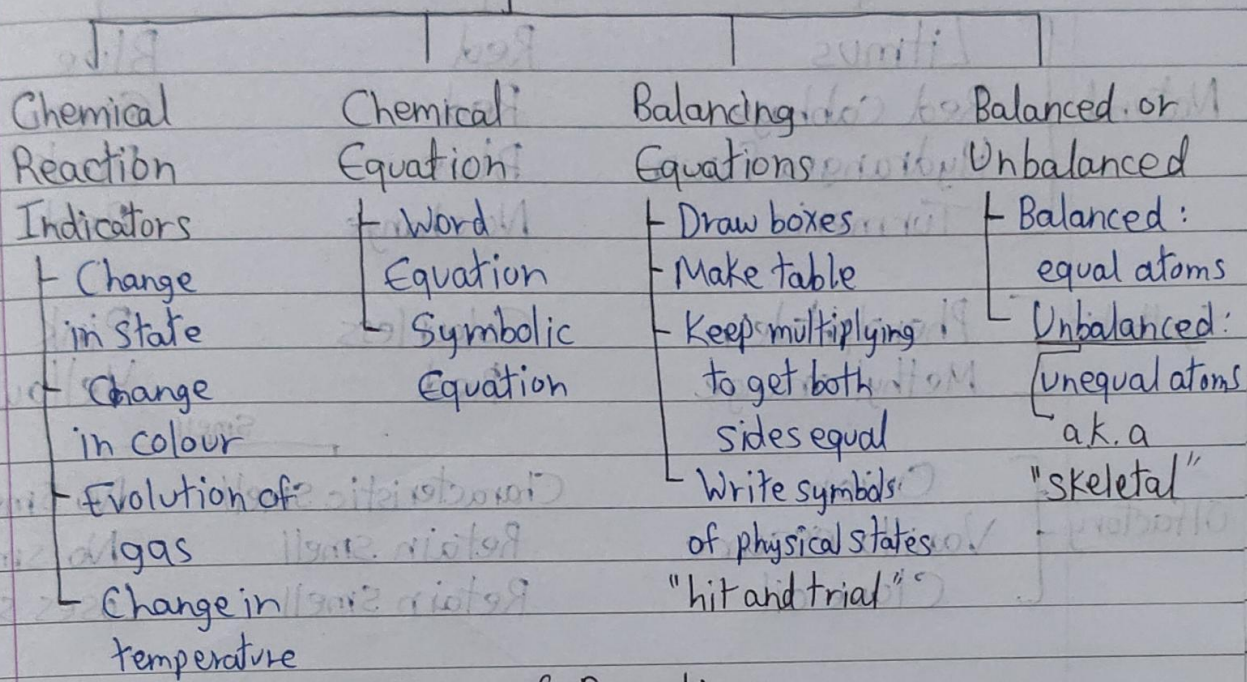 Chemical
Reaction
Indicators
Change
in state
Change
in colour
Evolution of
gas
Change in
temperature
Chemical
Equation
Word
Equation
Symbolic
Equation
Balancing
Equations
Draw boxes
Make table
Keep multiplying
to get both
sides equal
Write symbols
of physical states
"hit and trial"
Balanced or
Unbalanced
Balanced :
equal atoms
Unbalanced :
unequal atoms
a.k.a
"skeletal"